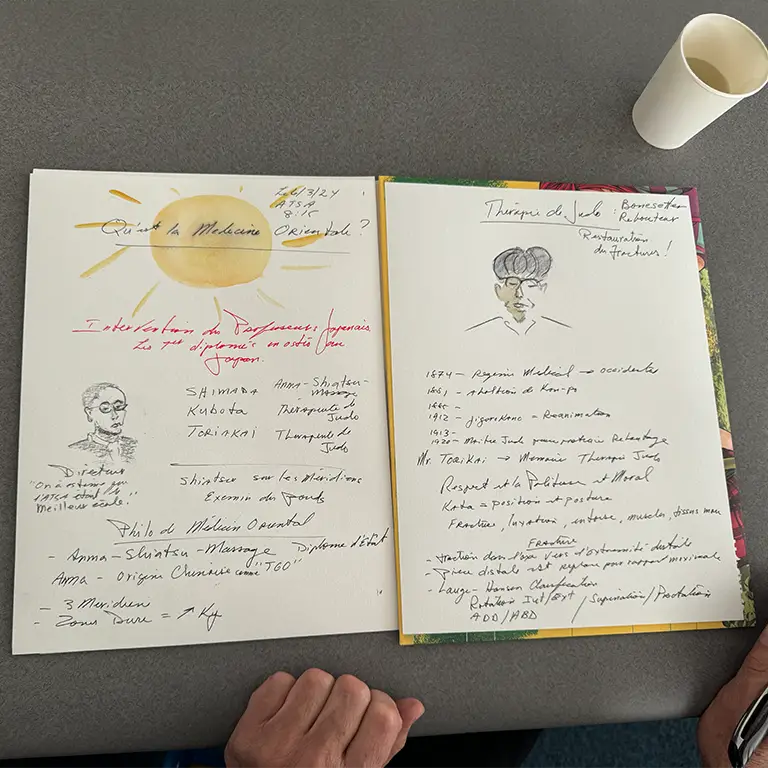 Le 6/3/24
ATSA
8:15
Qu'est la Médecine Orientale ?
Intervention des Professeurs Japonais
Les 1ers diplômés en ostéo au
Japon.
SHIMADA Anma-Shiatsu-Massage
Kubota Thérapeute de Judo
TORIAKAI Thérapeute de Judo
Directeur
"On a estimé que
l'ATSA était la
Meilleur école."
Shiatsu sur les Méridiens
Examen du pouls
Philo de Médecin Oriental
- Anma-Shiatsu-Massage Diplome d'État
Anma - Origine Chinoise comme "TGO"
- 3 Meridien
- Zones Dure = ↗ Ky
Thérapie de Judo : Bonesetter
Rebouteur
Restauration
des Fractures !
1874 - Regime Medical → occidentale
1881, abolition de Kan-po
1885 -
1912 - Jigorokano = Reanimation
1913 -
1920 - Maitre Judo Reboutage
Mr. TORIKAI → Therapie Judo
Respect et la Politesse et Moral
Kata = position et posture
Fracture, luxation, entorse, muscles, tissus mou
Fracture
- traction dans l'axe vers l'extrémité distale
- Pièce distale est replacé par rapport proximale
- Lauge-Hansen Classification
Rotation Int/Ext / Supination/Pronation
ADD/ABD